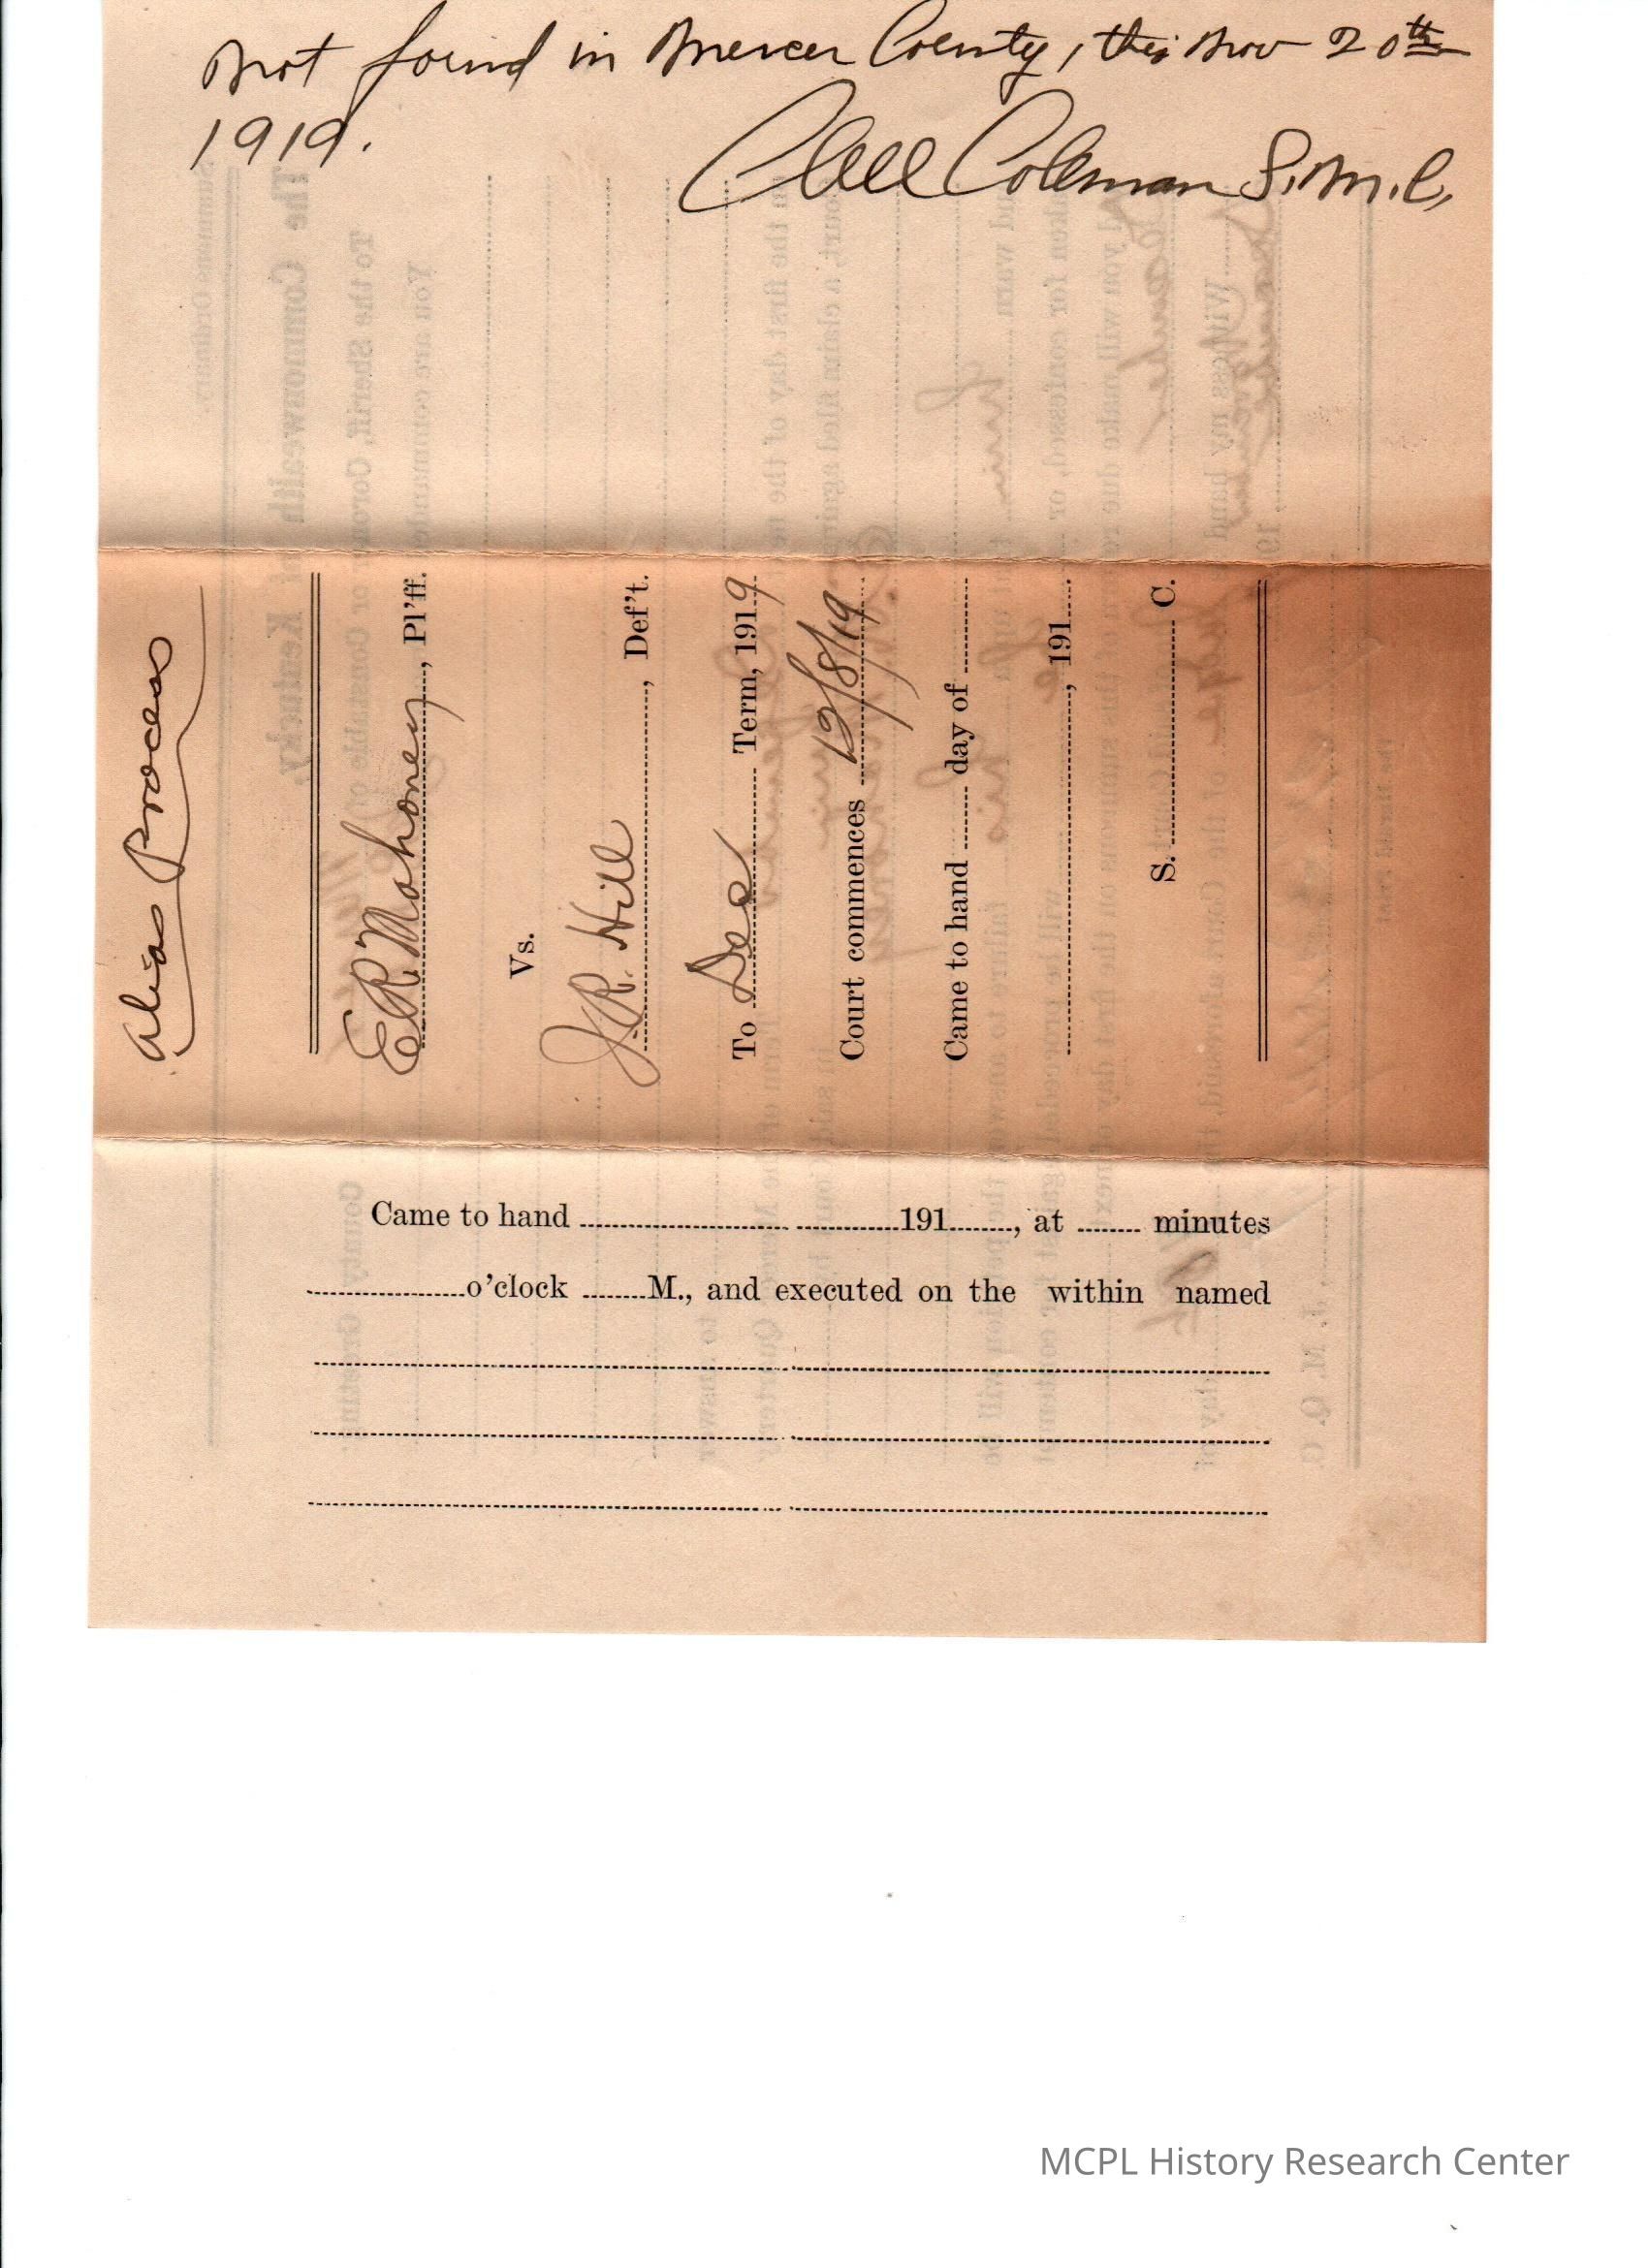 Not found in Mercer County, this Nov 20th
1919.
Clell Coleman S.M.C.
Alias Process
E.R. Mahoney, Pl'ff.
Vs.
J.R. Hill, Def't.
To Dec Term, 1919
Court commences 12/8/19
Came to hand day of
, 191
S. C.
Came to hand 191, at minutes
o'clock M., and executed on the within named
MCPL History Research Center